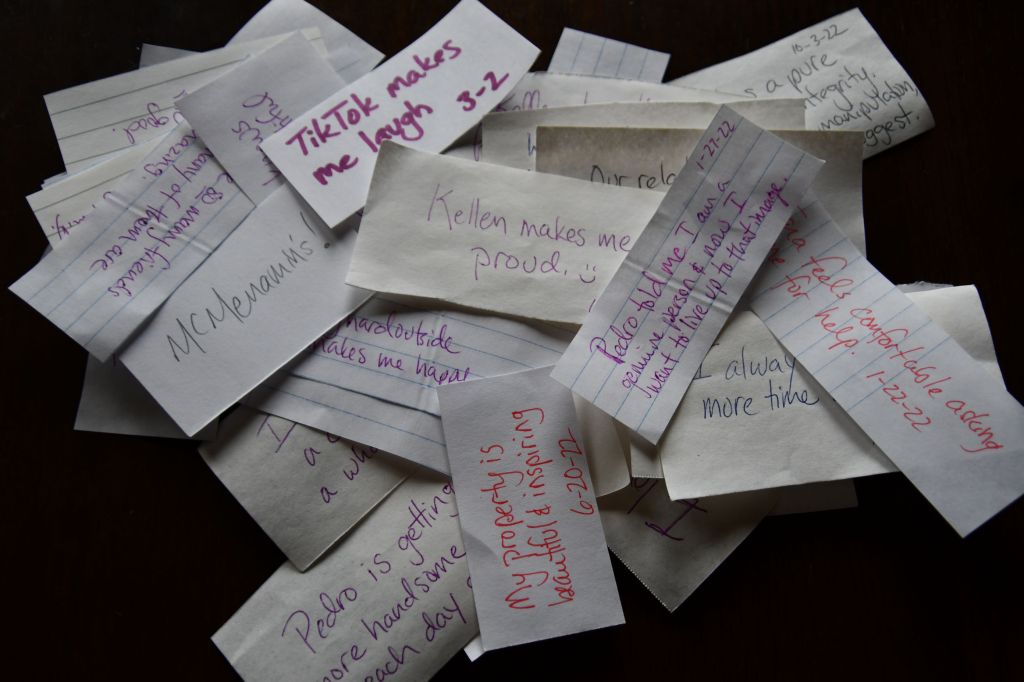 TikTok makes
me laugh
3-2
10-3-22
a pure
integrity.
manipulation,
Our rela
1-27-22
Pedro told me I am a
genuine person & now I
want to live up to that image.
Kellen makes me
proud. ☺
good.
so many friends
many of them are
McMenamin's!
hardoutside
makes me happy
feels comfortable asking
for help.
1-22-22
I alway
more time
I
a
a wh
My property is
beautiful & inspiring
6-20-22
Pedro is getting
more handsome
each day